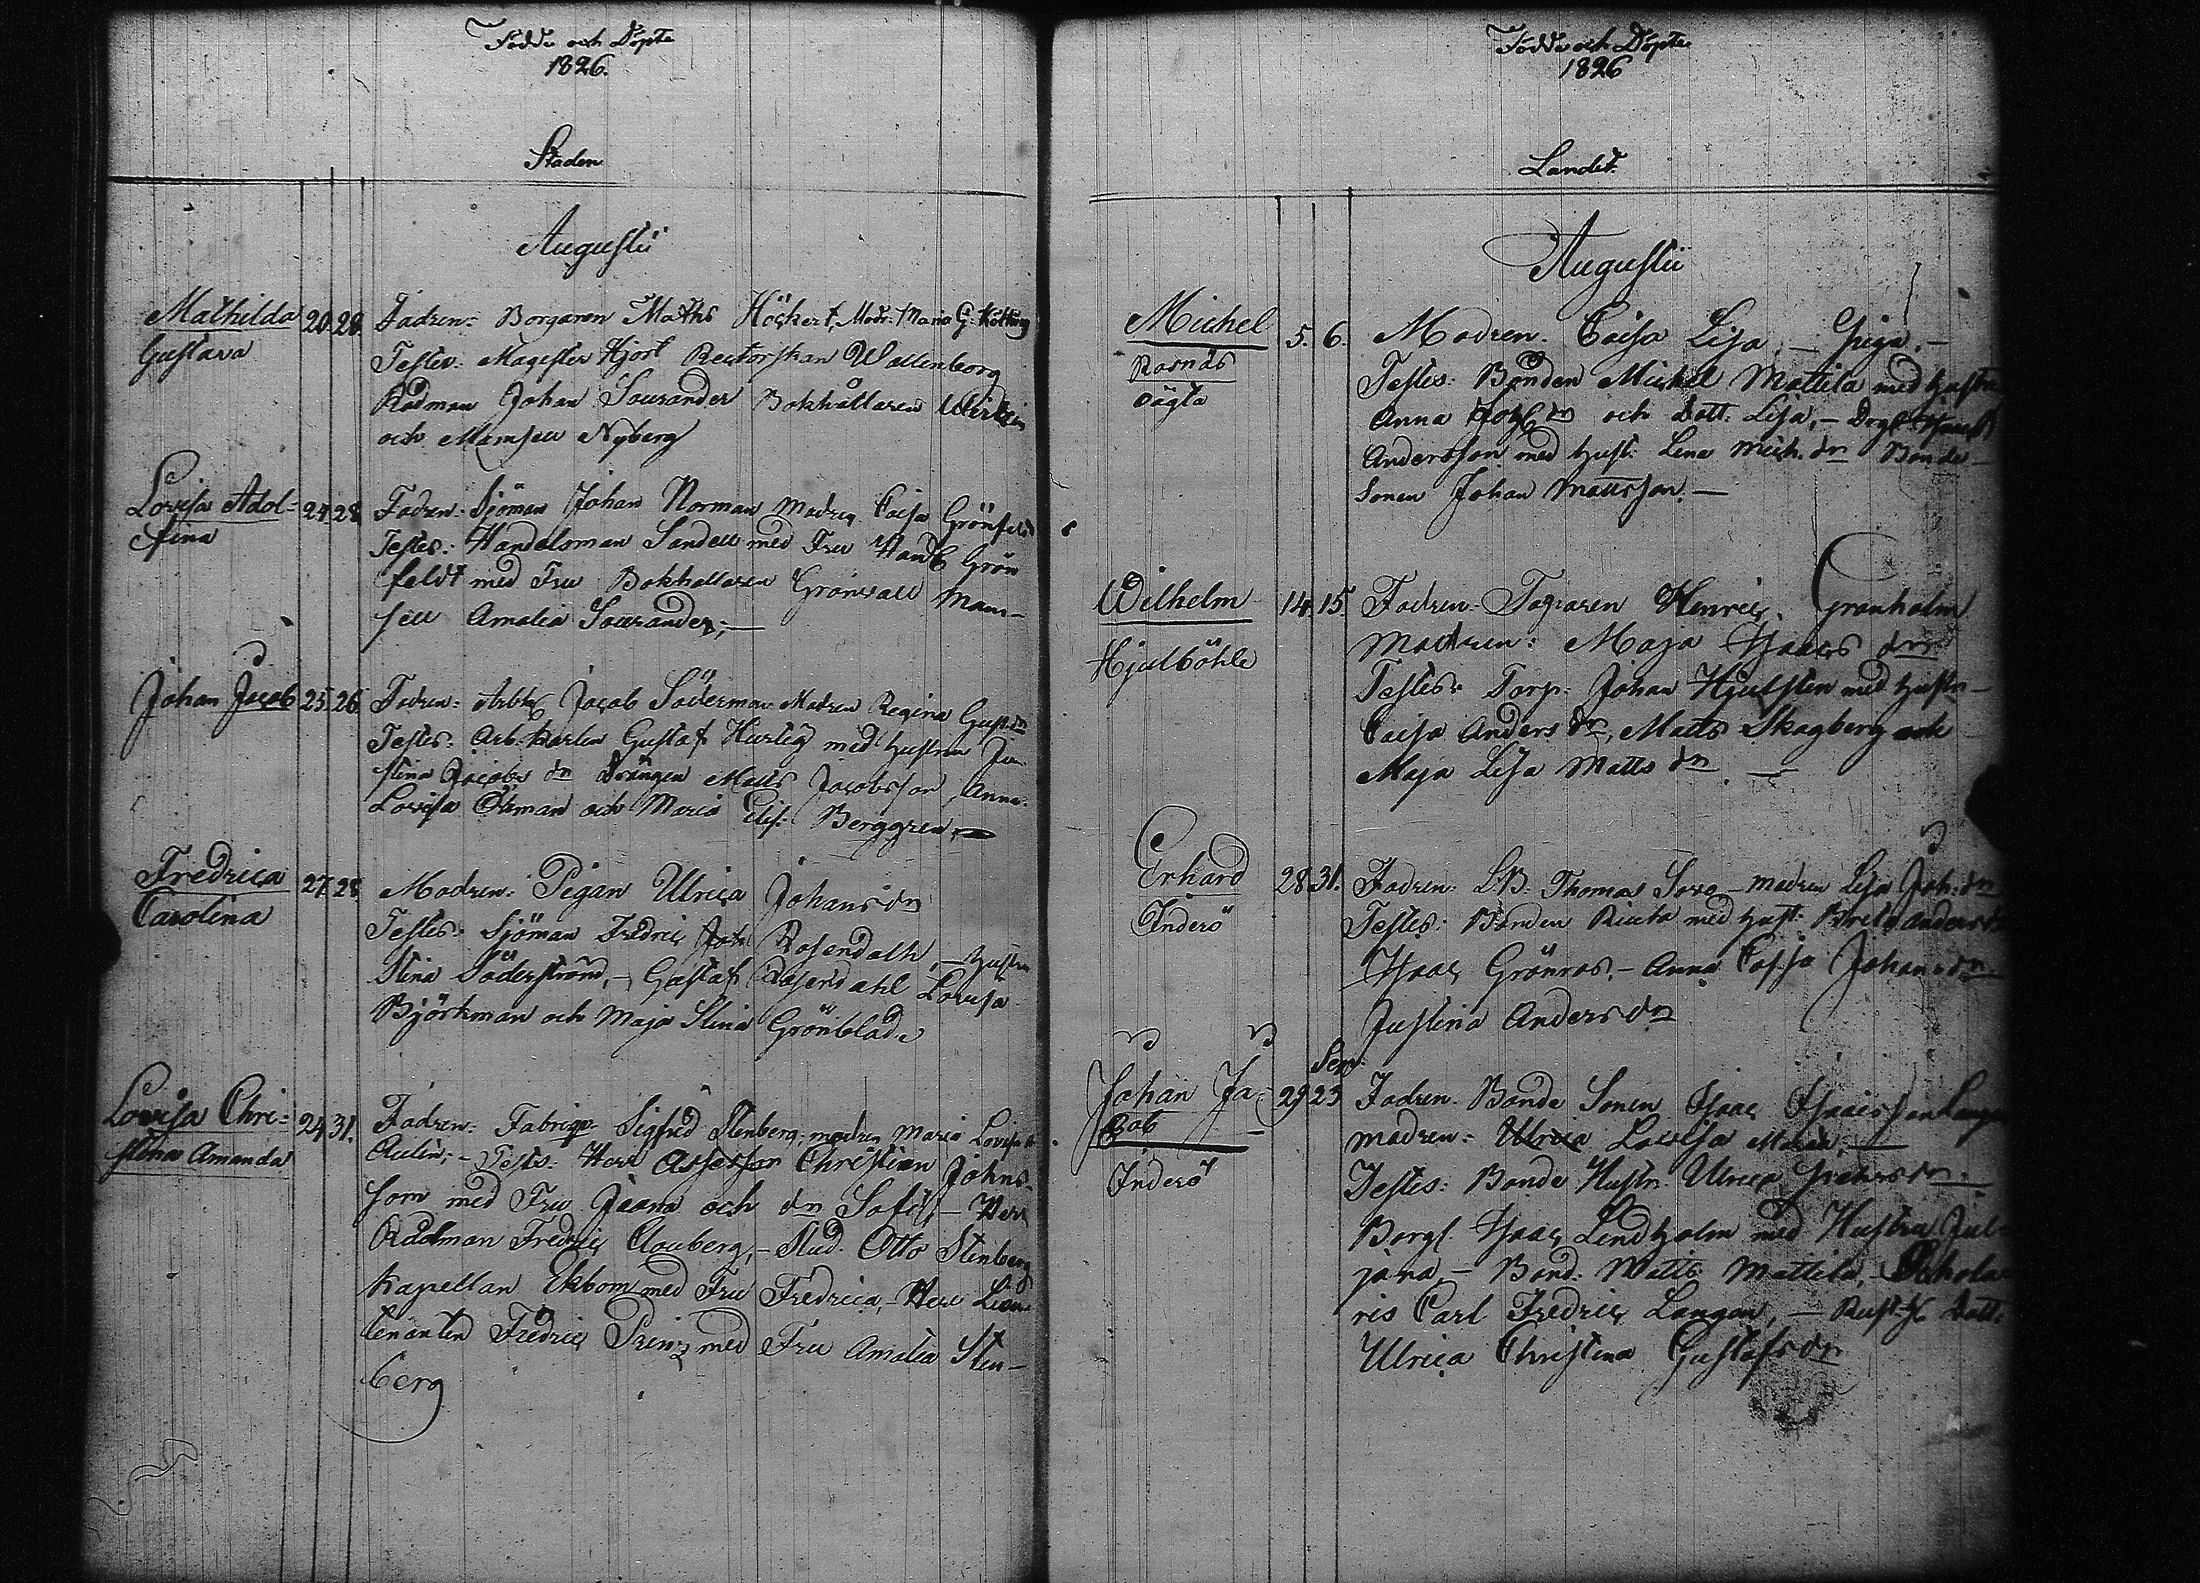 Födde och Döpte
1826.
Staden
Augusti
Mathilda 20 28 Fadren: Borgaren Maths Höckert, Modr: Maria G.
Gustava Testes: Magister Hjort Rectorskan Wallenborg
Rådman Johan Sourander Bokhållaren
och Mamsell Nyberg
Lovisa Adol= 24 28 Fadren: Sjöman Johan Norman Modren Caisa Grönfeldt
fina Testes: Handelsman Sandell med Fru Handl Grön
feldt med Fru Bokhållaren Grönvall Mam-
sell Amalia Sourander;—
Johan Jacob 25 26 Fadren: Arbtk Jacob Söderman Modren Regina Gust. dr
Testes: Arb. karlen Gustaf Hurtig med hustru Ju
stina Jacobs dr Drängen Matts Jacobsson, Anna
Lovisa Öhman och Maria Elis: Berggren,—
Fredrica 27 28 Modren: Pigan Ulrica Johans dr
Carolina Testes: Sjöman Fredric Rosendalh,— hustru
Stina Söderström,— Gustaf Rosendahl Lovisa
Björkman och Maja Stina Grönblad.
Lovisa Chri= 24 31. Fadren: Fabriqs: Sigfrid Stenberg, modren Maria Lovisa
stina Amanda Aulin;— Testes: Herr Assessor Christian Johns-
son med Fru och dr Sofi,— Herr
Rådman Fredric Clouberg,— Stud. Otto Stenberg
Kapellan Ekbom med Fru Fredrica,— Herr Lieu
tenanten Fredric Prinz med Fru Amalia Sten-
berg
Födde och Döpte
1826
Landet.
Augusti
Michel 5. 6. Modren. Caisa Lisa,— Piga.—
Rosnäs Testes: Bonden Michel Mattila med hustru
Anna dr och dott: Lisa,— Isaac
Andersson med hust: Lena Mich. dr Bonde—
Sonen Johan Mattsson.—
Wilhelm 14. 15. Fadren: Henric Granholm
Hjulböhle Modren: Maja Isaacs dr
Testes: Torp: Johan Hjulsten med hustr—
Caisa Anders dr, Matts Skogberg och
Maja Lisa Matts dr.—
Erhard 28 31. Fadren: L.B. Thomas — modren Lisa Joh: dr
Inderö Testes: Bonden med hust: Brita Anders dr
Isaac Grönros.— Anna Caisa Johans dr
Justina Anders dr
Sep:
Johan Ja= 29 23 Fadren: Bonde Sonen Isaac Isaacsson
Cob Modren: Ulrica Lovisa
Inderö Testes: Bonde Hustr. Ulrica dr.—
Borgl. Isaac Lindholm med Hustru Jul=
jana,— Bond: Matts Mattila,— Schola
ris Carl Fredric Langan,— Rusth dott:
Ulrica Christina Gustafs dr